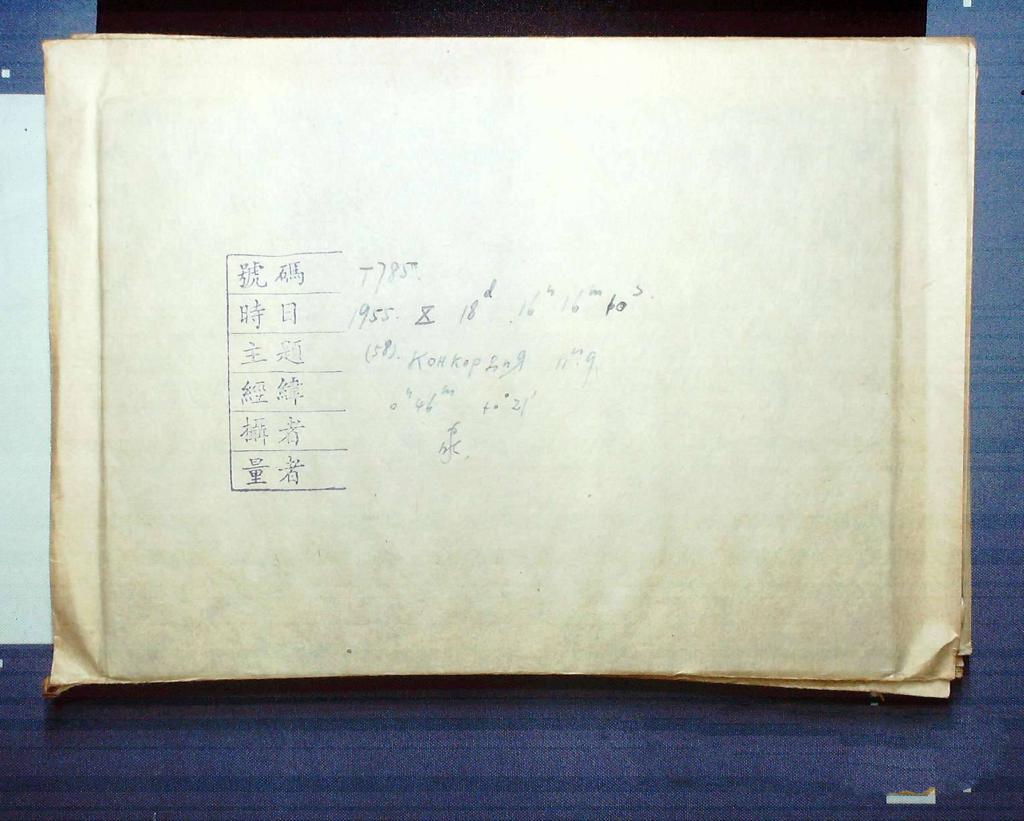 號碼 T785.
時日 1955. X 18ᵈ 16ʰ 16ᵐ 60ˢ.
主題 (58). Конкордия 11ᵐ.9
經緯 0ʰ46ᵐ +0°21'
攝者
量者